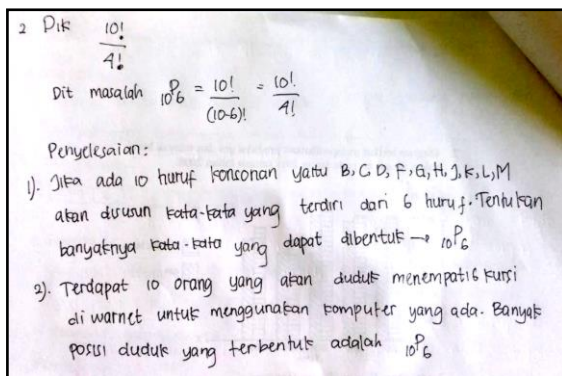 2 Dik 10!/4!
Dit masalah ₁₀P₆ = 10!/(10-6)! = 10!/4!
Penyelesaian:
1). Jika ada 10 huruf konsonan yaitu B, C, D, F, G, H, J, K, L, M
akan disusun kata-kata yang terdiri dari 6 huruf. Tentukan
banyaknya kata-kata yang dapat dibentuk → ₁₀P₆
2). Terdapat 10 orang yang akan duduk menempati 6 kursi
di warnet untuk menggunakan komputer yang ada. Banyak
posisi duduk yang terbentuk adalah ₁₀P₆